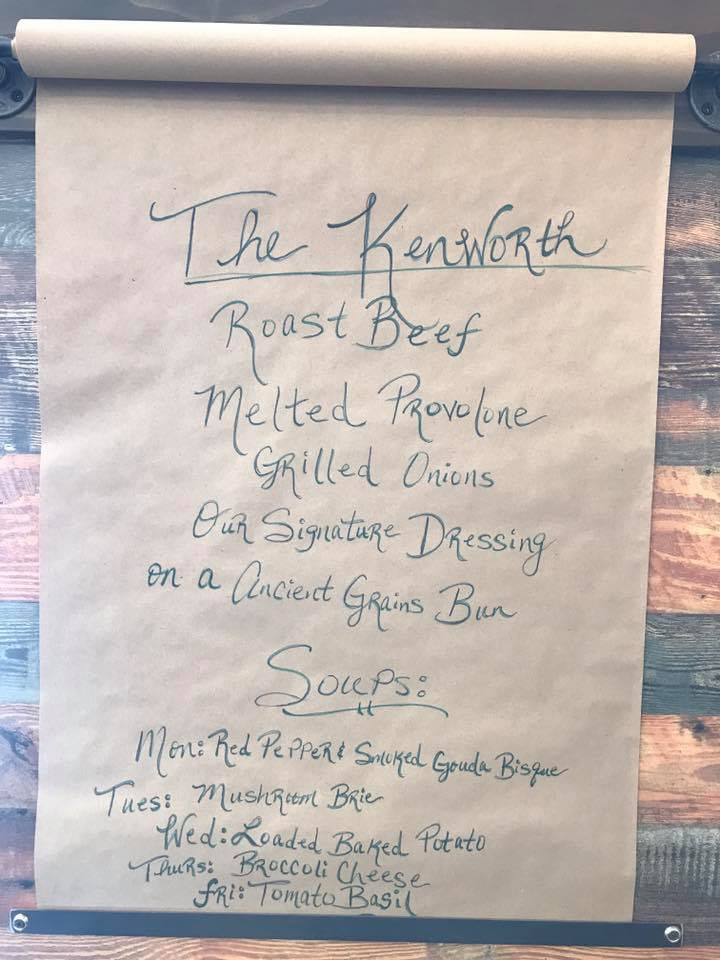 The Kenworth
Roast Beef
Melted Provolone
Grilled Onions
Our Signature Dressing
on a Ancient Grains Bun
Soups:
Mon: Red Pepper & Smoked Gouda Bisque
Tues: Mushroom Brie
Wed: Loaded Baked Potato
Thurs: Broccoli Cheese
Fri: Tomato Basil